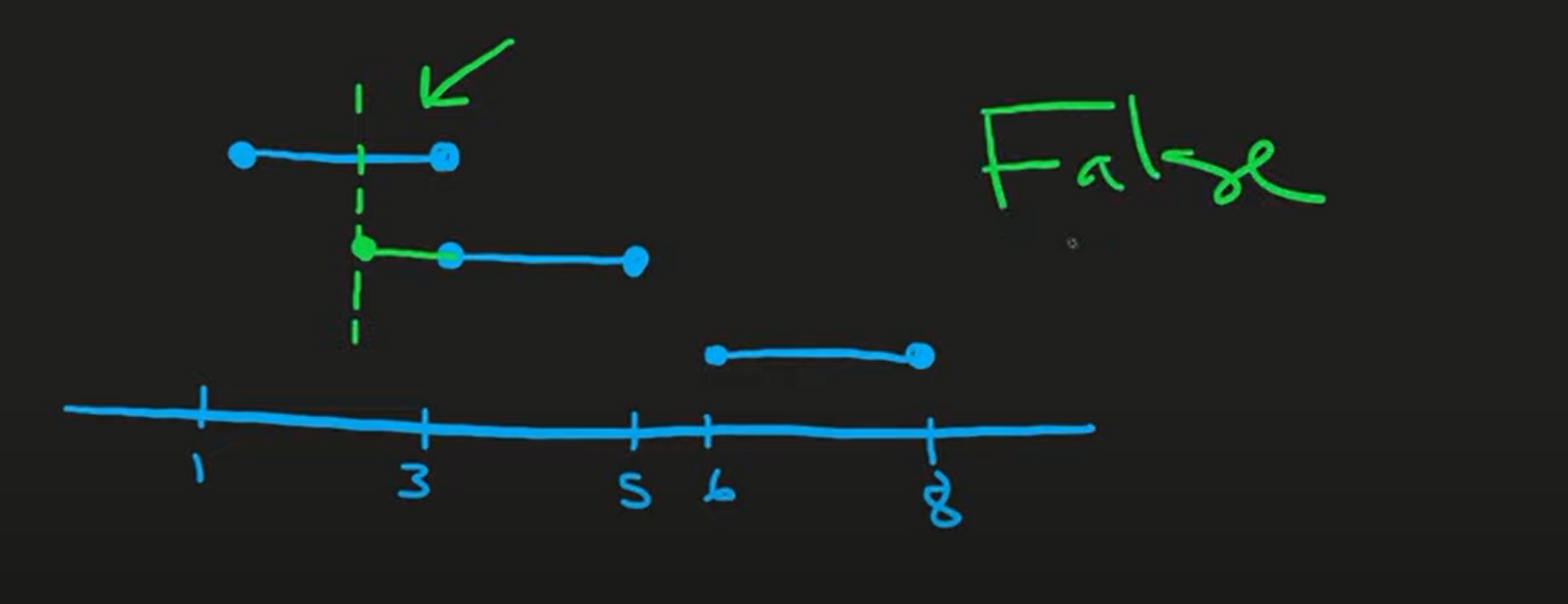 False
1 3 5 6 8